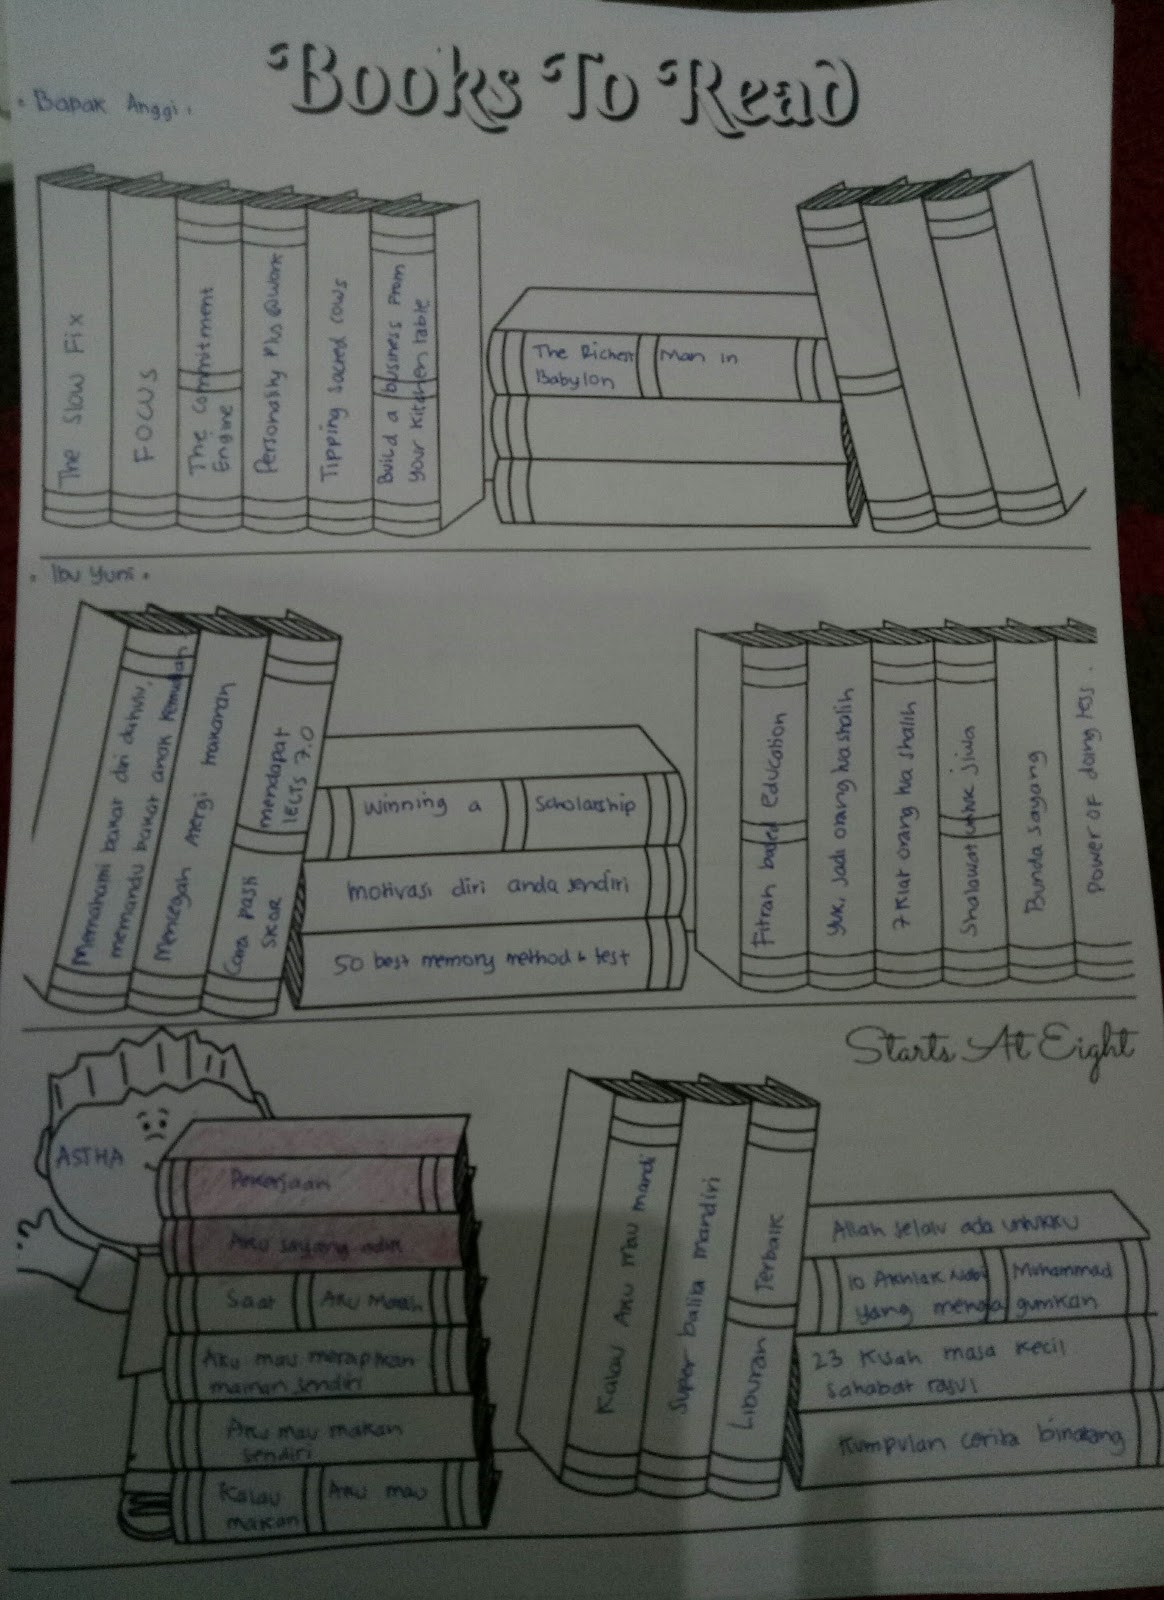 Books To Read
• Bapak Anggi •
The Slow Fix
FOCUS
The Commitment
Engine
Personality Plus @work
Tipping sacred cows
Build a business from
your kitchen table
The Richest Man in
Babylon
• Ibu Yuni •
Memahami bakat diri dahulu,
memandu bakat anak kemudian
Mencegah alergi makanan
Cara pasti mendapat
skor IELTS 7.0
Winning a Scholarship
motivasi diri anda sendiri
50 best memory method & test
Fitrah based education
Yuk, Jadi orang tua shalih
7 Kiat orang tua shalih
Shalawat untuk jiwa
Bunda sayang
Power of doing less.
Starts At Eight
ASTHA
Pekerjaan
Aku sayang adik
Saat Aku Marah
Aku mau merapihkan
mainan sendiri
Aku mau makan
sendiri
Kalau Aku mau
makan
Kalau Aku mau mandi
Super balita mandiri
Liburan Terbaik
Allah selalu ada untukku
10 Akhlak Nabi Muhammad
yang mengagumkan
23 Kisah masa kecil
sahabat rasul
Kumpulan cerita binatang